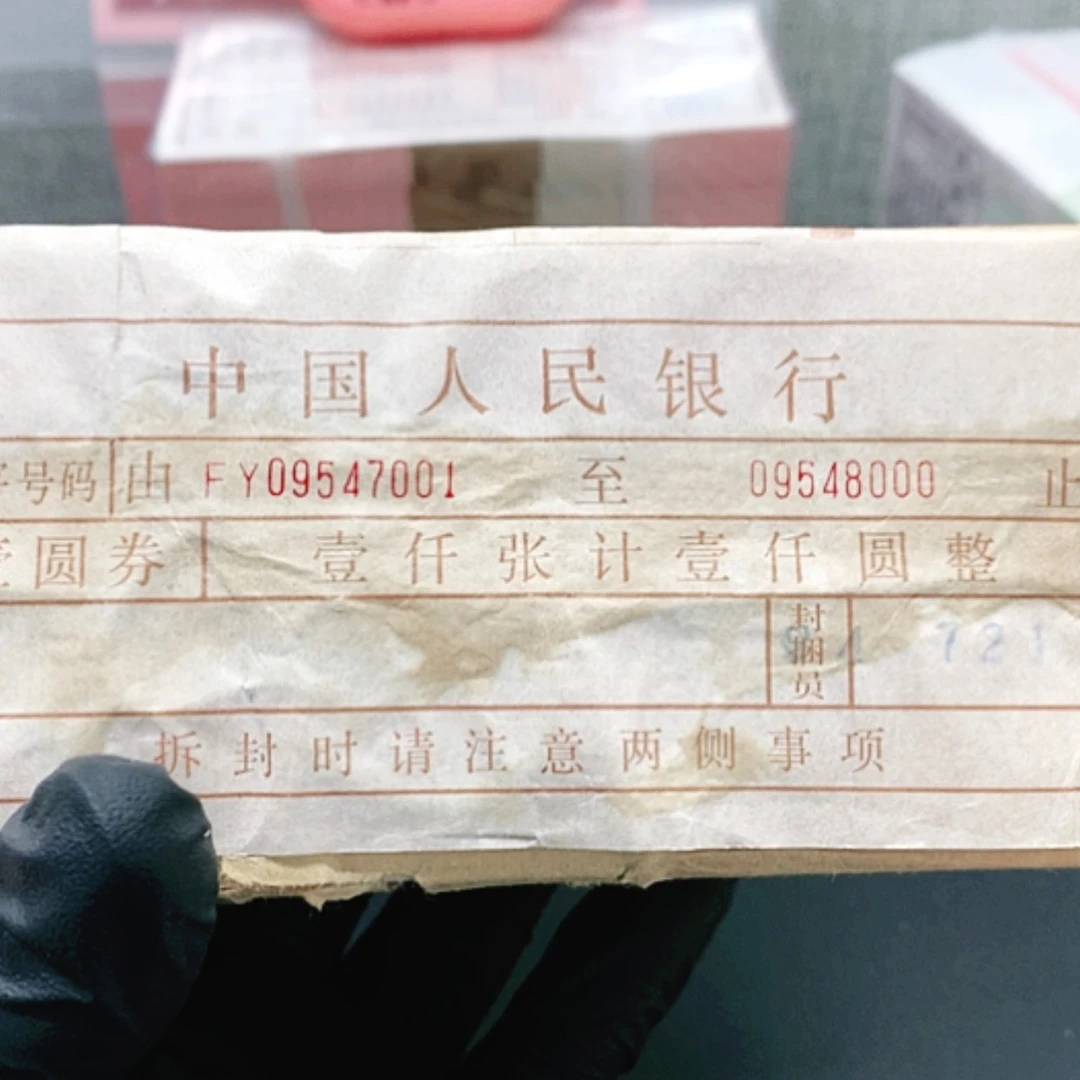 中国人民银行
字号码 由 FY09547001 至 09548000 止
壹圆券 壹仟张计壹仟圆整
封捆员 721
拆封时请注意两侧事项